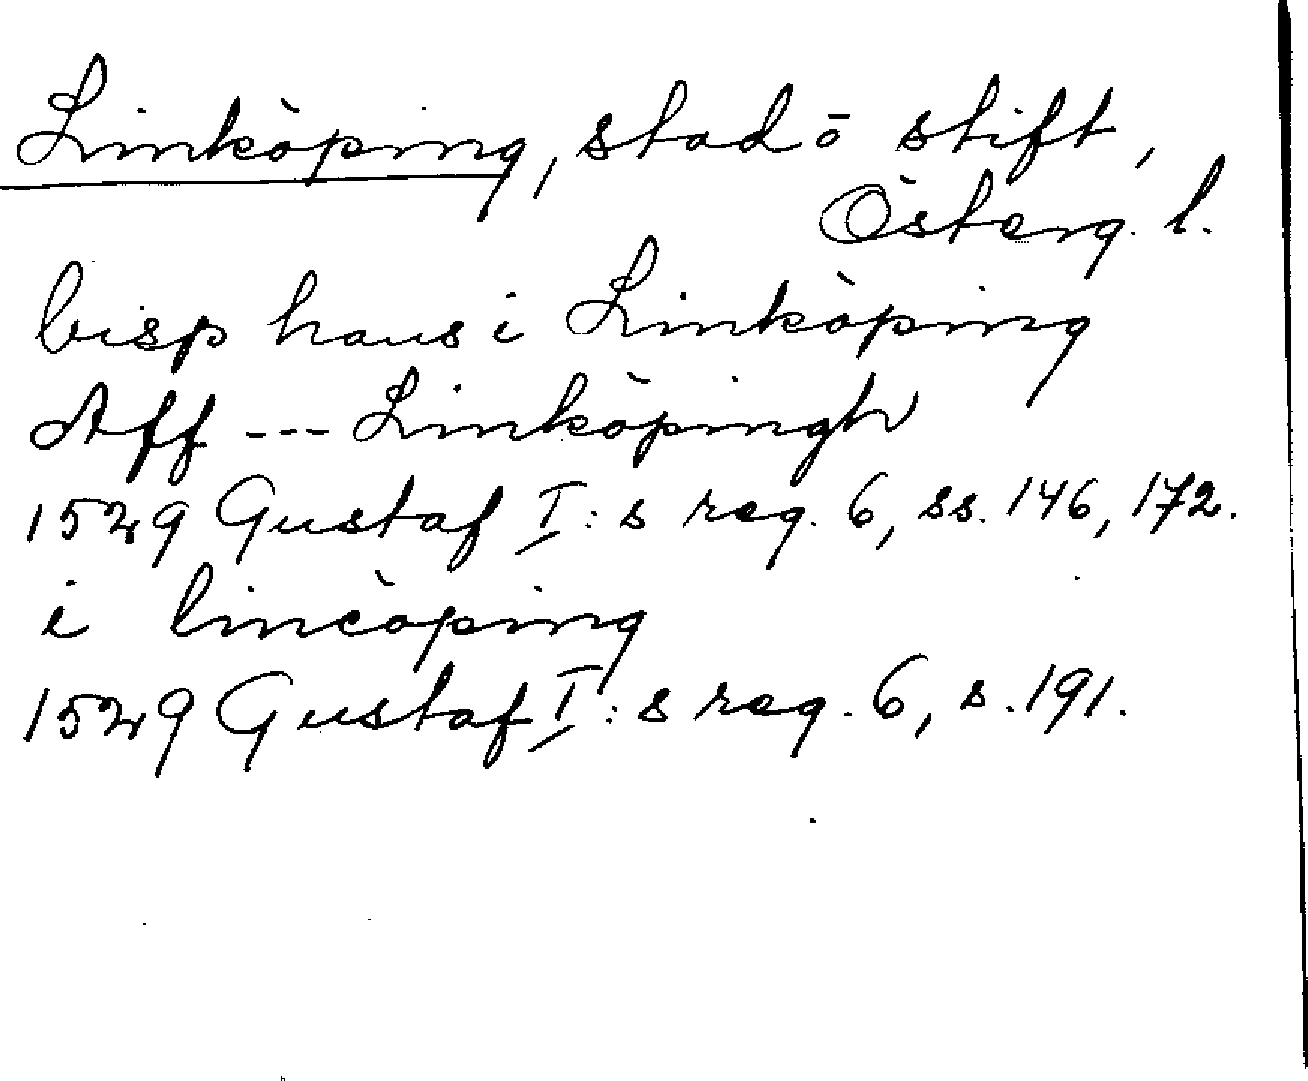 Linköping, stad o stift,
Österg. l.
bisp hans i Linköping
Aff --- Linköpingh
1529 Gustaf I:s reg. 6, ss. 146, 172.
i lincöping
1529 Gustaf I:s reg. 6, s. 191.